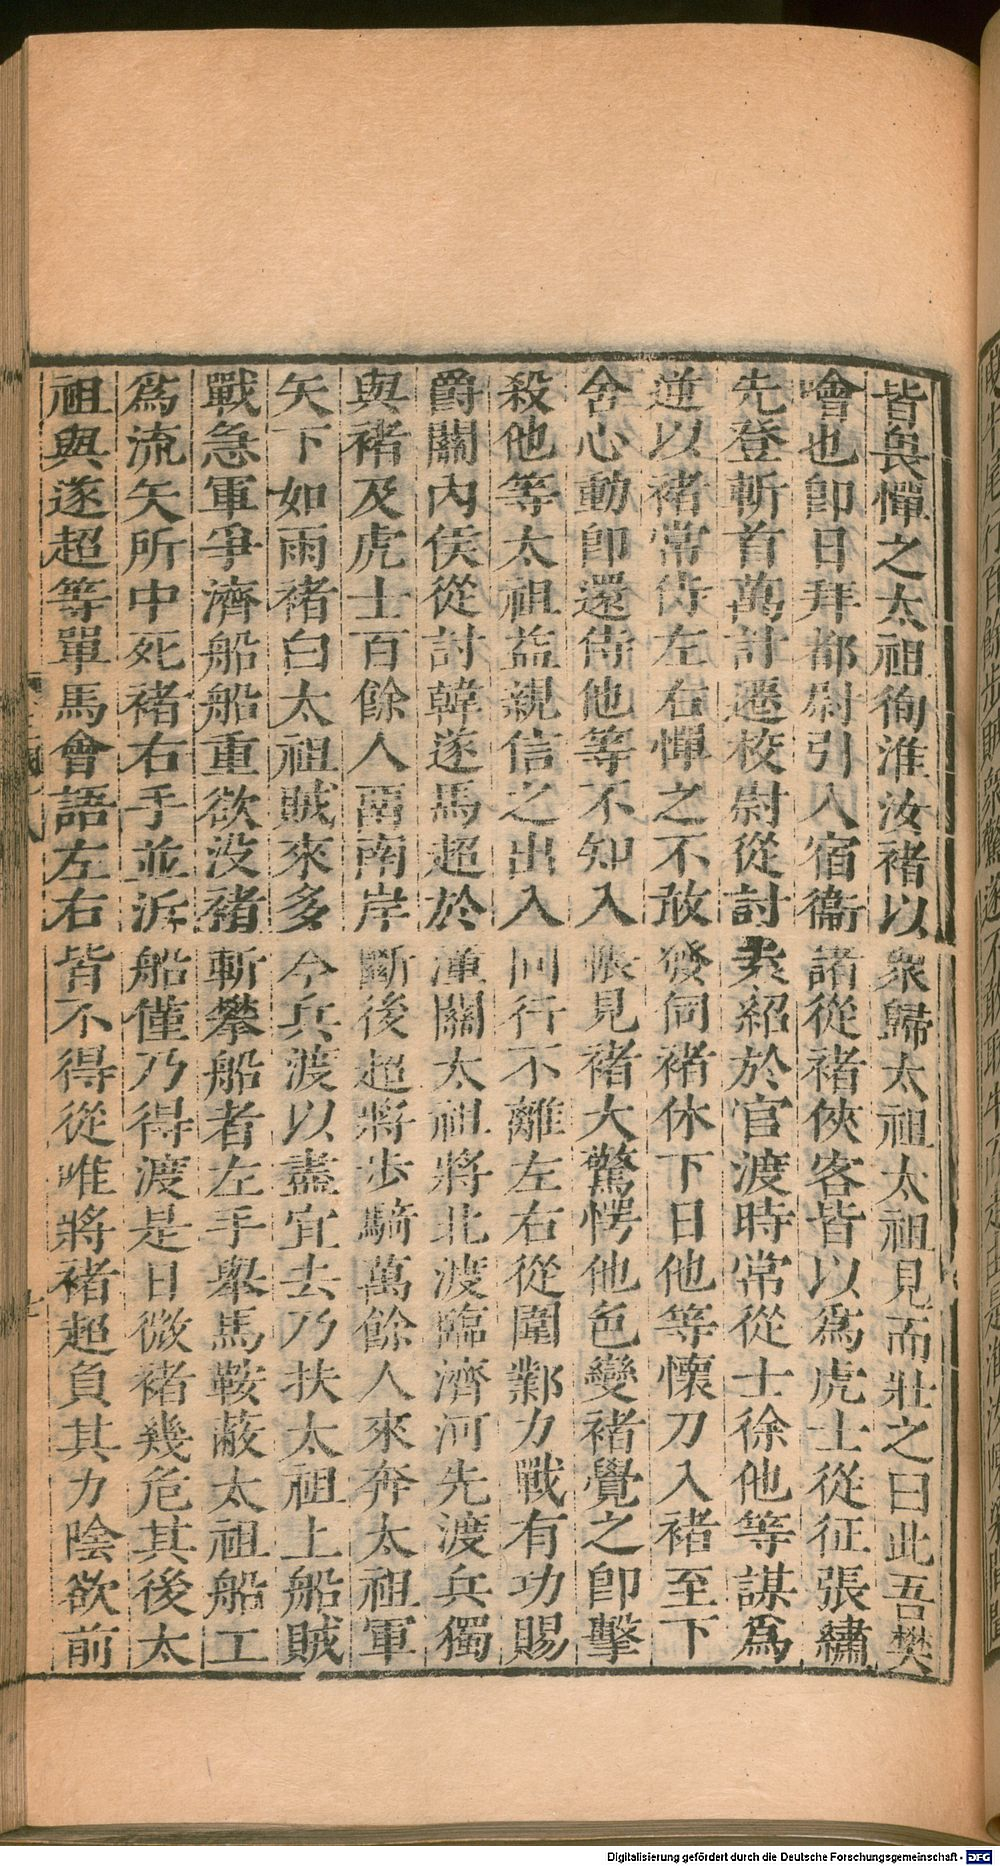 皆畏憚之太祖徇淮汝褚以衆歸太祖太祖見而壯之曰此吾樊
噲也卽日拜都尉引入宿衞諸從褚俠客皆以爲虎士從征張繡
先登斬首萬計遷校尉從討袁紹於官渡時常從士徐他等謀爲
逆以褚常侍左右憚之不敢發伺褚休下日他等懷刀入褚至下
舍心動卽還侍他等不知入帳見褚大驚愕他色變褚覺之卽擊
殺他等太祖益親信之出入同行不離左右從圍鄴力戰有功賜
爵關內侯從討韓遂馬超於潼關太祖將北渡臨濟河先渡兵獨
與褚及虎士百餘人畱南岸斷後超將步騎萬餘人來奔太祖軍
矢下如雨褚白太祖賊來多今兵渡以盡宜去乃扶太祖上船賊
戰急軍爭濟船船重欲没褚斬攀船者左手舉馬鞍蔽太祖船工
爲流矢所中死褚右手並泝船僅乃得渡是日微褚幾危其後太
祖與遂超等單馬會語左右皆不得從唯將褚超負其力陰欲前
Digitalisierung gefördert durch die Deutsche Forschungsgemeinschaft - DFG